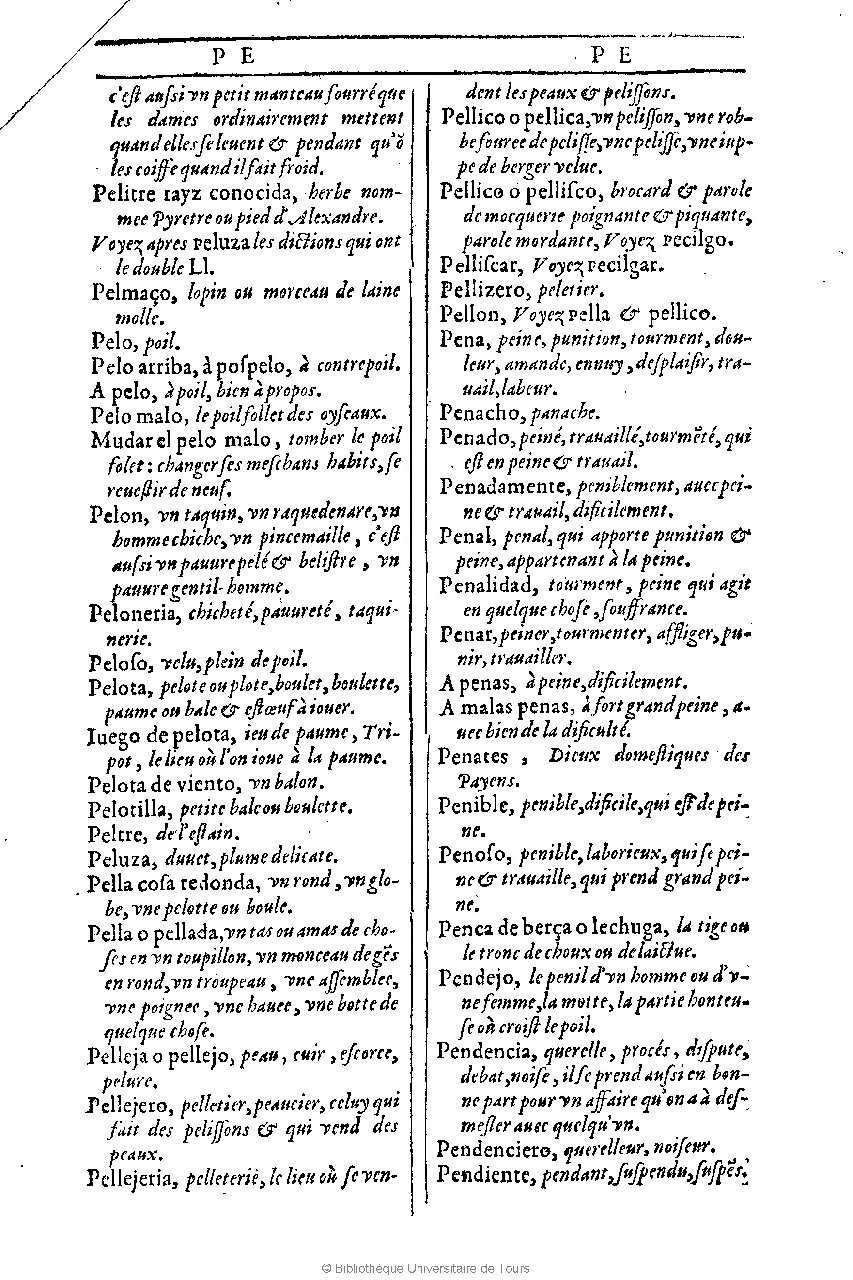 P E
c'eſt auſsi vn petit manteau fourré que
les dames ordinairement mettent
quand elles ſe leuent & pendant qu'õ
les coiffe quand il fait froid.
Pelitre rayz conocida, herbe nom-
mee Pyretre ou pied d'Alexandre.
Voyez apres Peluza les dictions qui ont
le double Ll.
Pelmaço, lopin ou morceau de laine
molle.
Pelo, poil.
Pelo arriba, à poſpelo, à contrepoil.
A pelo, à poil, bien à propos.
Pelo malo, le poil follet des oyſeaux.
Mudar el pelo malo, tomber le poil
folet: changer ſes meſchans habits, ſe
reueſtir de neuf.
Pelon, vn taquin, vn raquedenare, vn
homme chiche, vn pincemaille, c'eſt
auſsi vn pauure pelé & beliſtre, vn
pauure gentil-homme.
Peloneria, chicheté, pauureté, taqui-
nerie.
Peloſo, velu, plein de poil.
Pelota, pelote ou plote, boulet, boulette,
paume ou bale & eſtœuf à iouer.
Iuego de pelota, ieu de paume, Tri-
pot, le lieu où l'on ioue à la paume.
Pelota de viento, vn balon.
Pelotilla, petite bale ou boulette.
Peltre, de l'eſtain.
Peluza, duuet, plume delicate.
Pella coſa redonda, vn rond, vn glo-
be, vne pelotte ou boule.
Pella o pellada, vn tas ou amas de cho-
ſes en vn toupillon, vn monceau de gẽs
en rond, vn troupeau, vne aſſemblee,
vne poignee, vne hauee, vne botte de
quelque choſe.
Pelleja o pellejo, peau, cuir, eſcorce,
pelure.
Pellejero, pelletier, peaucier, celuy qui
fait des peliſſons & qui vend des
peaux.
Pellejeria, pelleterie, le lieu où ſe ven-
P E
dent les peaux & peliſſons.
Pellico o pellica, vn peliſſon, vne rob-
be fouree de peliſſe, vne peliſſe, vne iup-
pe de berger velue.
Pellico o pelliſco, brocard & parole
de mocquerie poignante & piquante,
parole mordante, Voyez Pecilgo.
Pelliſcar, Voyez Pecilgar.
Pellizero, peletier.
Pellon, Voyez Pella & pellico.
Pena, peine, punition, tourment, dou-
leur, amande, ennuy, deſplaiſir, tra-
uail, labeur.
Penacho, panache.
Penado, peiné, trauaillé, tourmẽté, qui
eſt en peine & trauail.
Penadamente, peniblement, auec pei-
ne & trauail, dificilement.
Penal, penal, qui apporte punition &
peine, appartenant à la peine.
Penalidad, tourment, peine qui agit
en quelque choſe, ſouffrance.
Penar, peiner, tourmenter, affliger, pu-
nir, trauailler.
A penas, à peine, dificilement.
A malas penas, à fort grand peine, a-
uec bien de la dificulté.
Penates, Dieux domeſtiques des
Payens.
Penible, penible, dificile, qui eſt de pei-
ne.
Penoſo, penible, laborieux, qui ſe pei-
ne & trauaille, qui prend grand pei-
ne.
Penca de berça o lechuga, la tige ou
le tronc de choux ou de laictue.
Pendejo, le penil d'vn homme ou d'v-
ne femme, la motte, la partie honteu-
ſe où croiſt le poil.
Pendencia, querelle, procés, diſpute,
debat, noiſe, il ſe prend auſsi en bon-
ne part pour vn affaire qu'on a à deſ-
meſler auec quelqu'vn.
Pendenciero, querelleur, noiſeur.
Pendiente, pendant, ſuſpendu, ſuſpẽs,
© Bibliothèque Universitaire de Tours